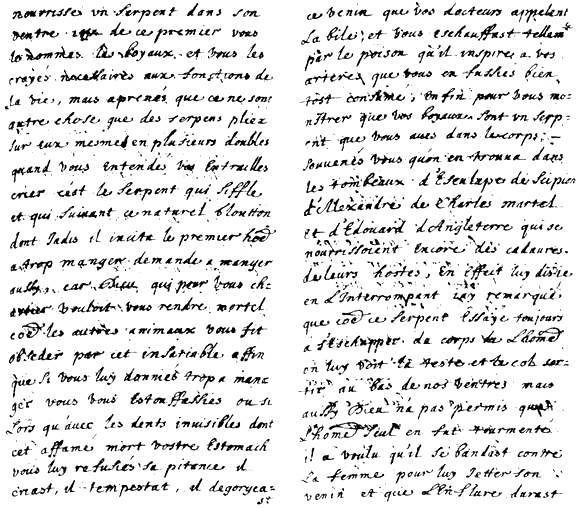 nourrisse vn serpent dans son
ventre de ce premier vous
les nommes les boyaux et vous les
croyes necessaires aux fonctions de
la vie, mais aprenés que ce ne sont
autre chose que des serpens pliez
sur eux mesmes en plusieurs doubles
quand vous entendés vos Entrailles
crier c'est le serpent qui siffle
et qui suivant ce naturel Glouton
dont Jadis il incita le premier hoe
a trop manger demande a manger
aussy, car Dieu qui pour vous ch-
astier vouloit vous rendre mortel
coe les autres animaux vous fit
obseder par cet insatiable affin
que si vous luy donniés trop a man-
ger vous vous Estouffassiés ou si
Lors qu'avec les dents invisibles dont
cet affamé mort vostre Estomach
vous luy refusiés sa pitance il
criast, il tempestat, il degorgea-
st
ce venin que vos docteurs appelent
La bile, et vous eschauffast tellemt
par le poison qu'il inspire a vos
arteres que vous en fussiés bien
tost consumé; enfin pour vous mo-
nstrer que vos boyaux sont vn serp-
ent que vous aves dans le corps;
souvenés vous qu'on en trouva dans
les tombeaux d'Esculape de Scipion
d'Alexandre de Charles martel
et d'Edouard d'Angleterre qui se
nourrissoient encore des cadavres
de leurs hostes, En effet luy disie
en L'Interrompant Jay remarqué
que coe ce serpent Essaye toujours
a s'Eschapper du corps de L'home
on luy voit la teste et le col sor-
tir au bas de nos ventres mais
aussy Dieu n'a pas permis que
L'home seul en fut tourmenté
il a voulu qu'il se bandast contre
La femme pour luy Jetter son
venin et que L'Enflure durast